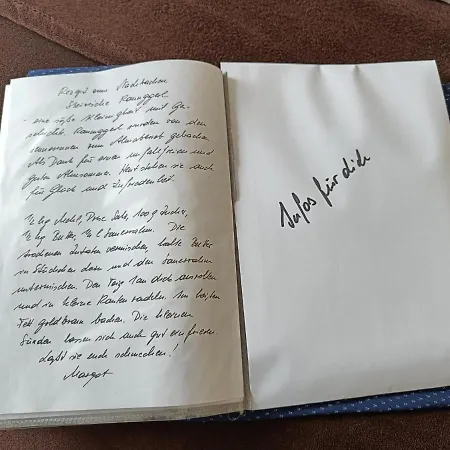 Rezept zum Nachbacken
Steirische Raunggerl
- eine süße Kleinigkeit mit Ge-
schichte. Raunggerl wurden von den
Sennerinnen zum Almabtrieb gebacken.
Als Dank für einen unfallfreien und
guten Almsommer. Heut stehen sie auch
für Glück und Zufriedenheit.
½ kg Mehl, Prise Salz, 100 g Zucker,
¼ kg Butter, ¼ l Sauerrahm. Die
trockenen Zutaten vermischen, kalte Butter
in Stückchen dazu und den Sauerrahm
untermischen. Den Teig 1 cm dick ausrollen
und in kleine Rauten radeln. Im heißen
Fett goldbraun backen. Die kleinen
Sünden lassen sich auch gut einfrieren.
Laßt sie euch schmecken!
Margot
Infos für dich